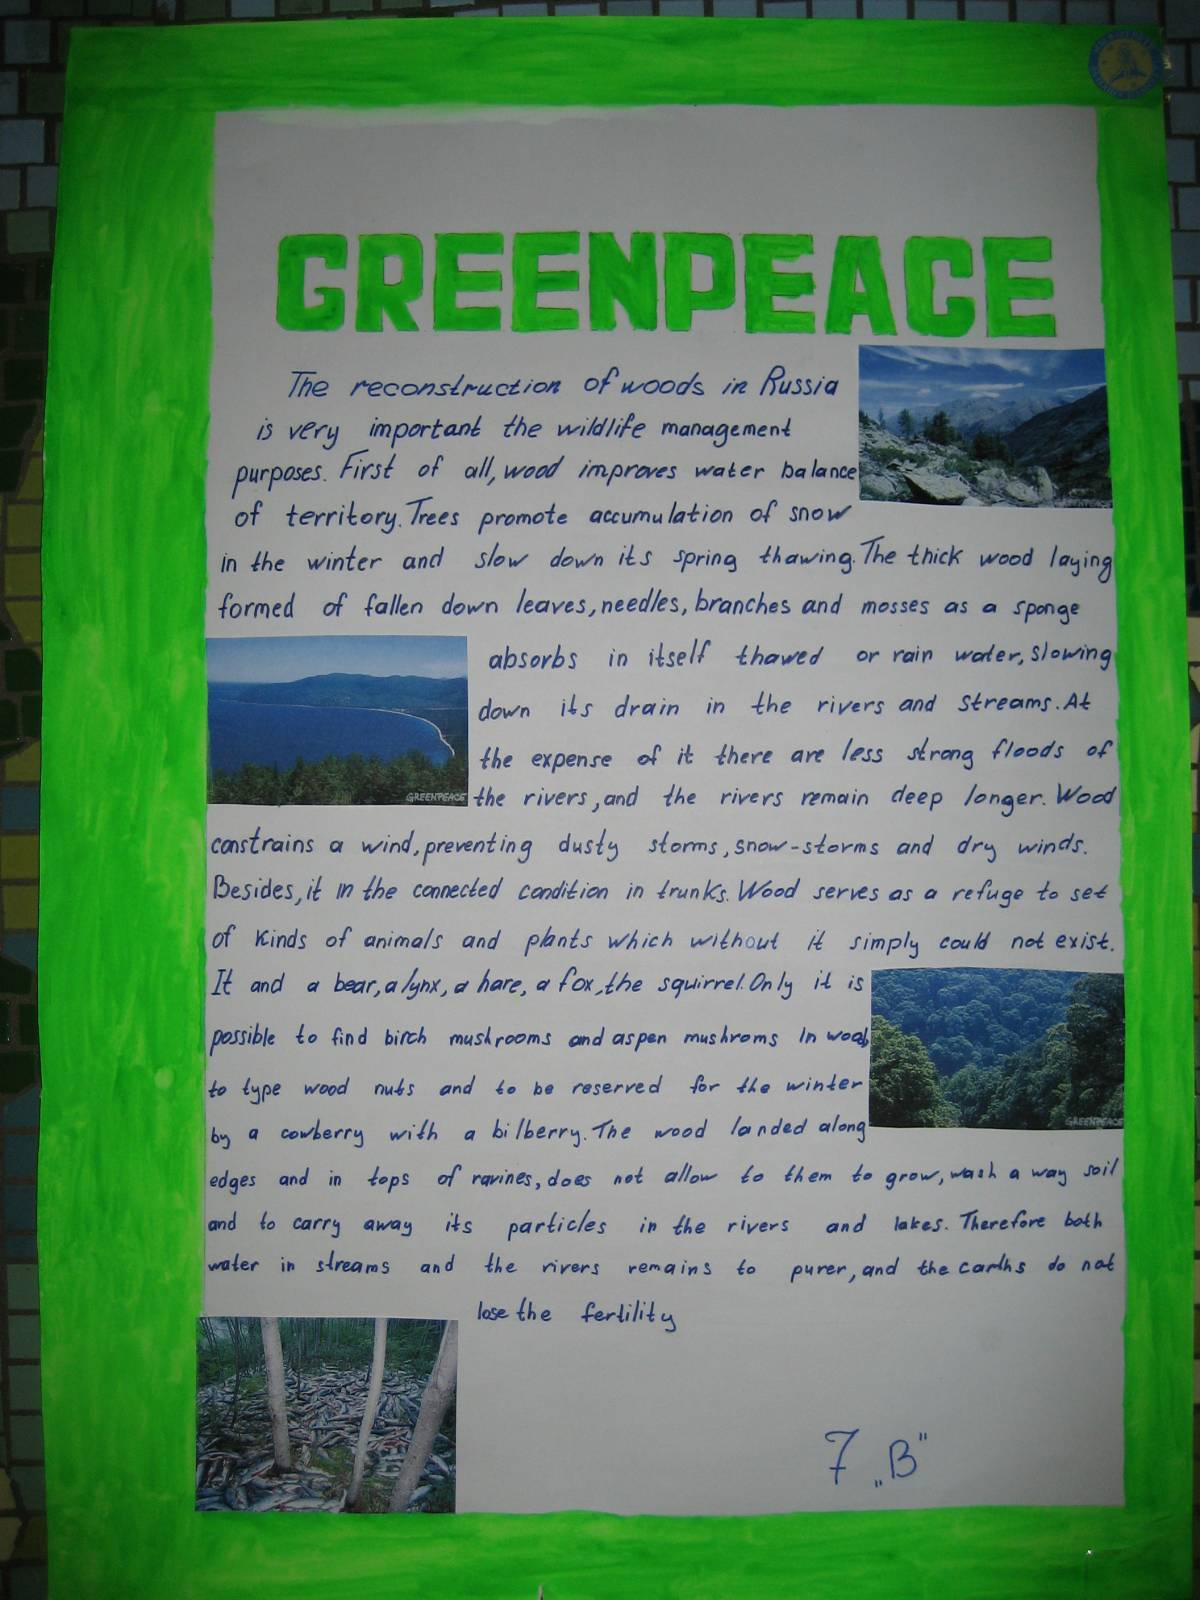 GREENPEACE
The reconstruction of woods in Russia
is very important the wildlife management
purposes. First of all, wood improves water balance
of territory. Trees promote accumulation of snow
in the winter and slow down its spring thawing. The thick wood laying
formed of fallen down leaves, needles, branches and mosses as a sponge
absorbs in itself thawed or rain water, slowing
down its drain in the rivers and streams. At
the expense of it there are less strong floods of
GREENPEACE
the rivers, and the rivers remain deep longer. Wood
constrains a wind, preventing dusty storms, snow-storms and dry winds.
Besides, it in the connected condition in trunks. Wood serves as a refuge to set
of kinds of animals and plants which without it simply could not exist.
It and a bear, a lynx, a hare, a fox, the squirrel. Only it is
possible to find birch mushrooms and aspen mushroms in wood,
to type wood nuts and to be reserved for the winter
GREENPEACE
by a cowberry with a bilberry. The wood landed along
edges and in tops of ravines, does not allow to them to grow, wash a way soil
and to carry away its particles in the rivers and lakes. Therefore both
water in streams and the rivers remains to purer, and the earths do not
lose the fertility
7 „B"